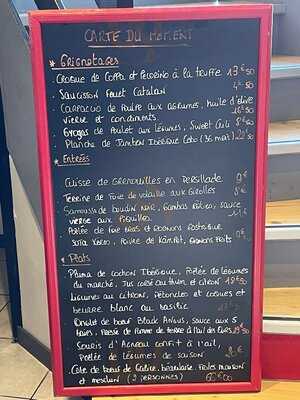 CARTE DU MOMENT
* Grignotages
- Croque de Coppa et Pecorino à la truffe 13€50
- Saucisson Fouet Catalan
- Carpaccio de Poulpe aux agrumes, huile d'olive
vierge et condiments
- Gyozas de Poulet aux légumes, Sweet Chili 8€50
- Planche de Jambon Ibérique Cebo (36 mois)
* Entrées
Cuisse de Grenouilles en Persillade 9€
Terrine de Foie de volaille aux Girolles 8€
Samoussa de boudin noir, Gambas rôties, sauce
vierge aux Piquillos 11€
Poêlée de foie gras et
Soja Yuzu, Poivre de Kampot, oignons frits
* Plats
Pluma de cochon Ibérique, Poêlée de légumes
du marché, Jus corsé au thym et citron 18€50
légumes au citron, pétoncles et coques et
beurre blanc au basilic
Onglet de bœuf Black Angus, sauce aux 5
baies, Presse de Pomme de terre à l'ail de l'ours
Souris d'Agneau confit à l'ail,
Poêlée de légumes de saison
Côte de bœuf de Galice, béarnaise, Frites maison
et mesclun (2 personnes) 66€00